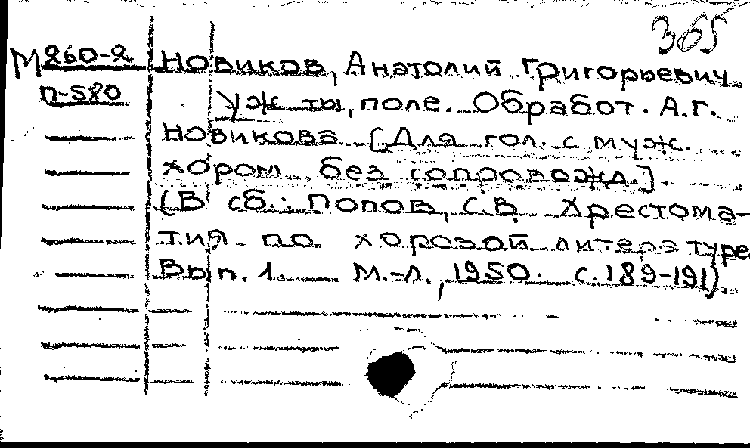 365
М260-2 Новиков, Анатолий Григорьевич
П-580 Уж ты, поле. Обработ. А.Г.
Новикова [Для гол. с муж.
хором без сопровожд.]
(В сб.: Попов, С.В. Хрестома-
тия по хоровой литературе
Вып. 1. М.-Л., 1950. с.189-191).